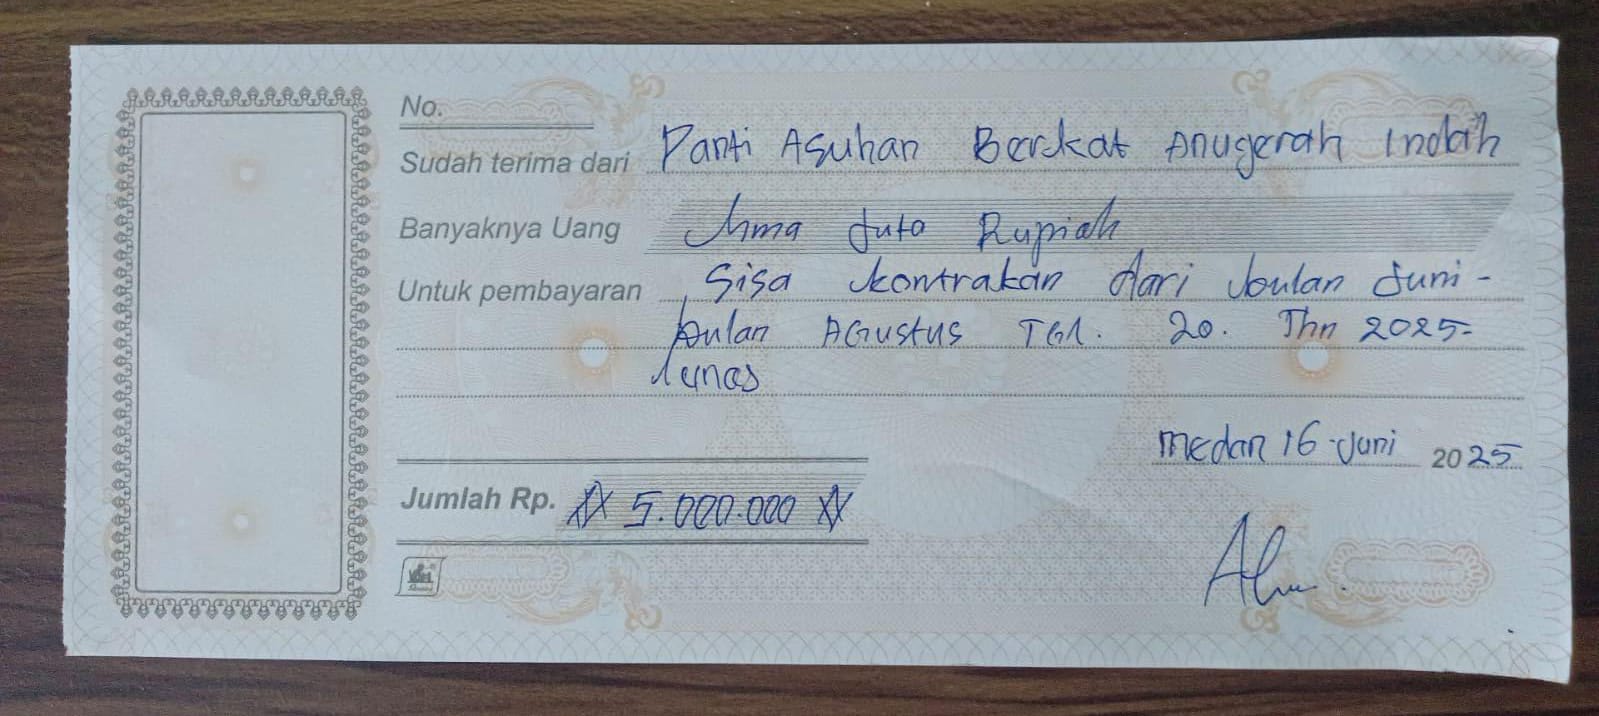 No.
Sudah terima dari Panti Asuhan Berkat Anugerah Indah
Banyaknya Uang Lima Juta Rupiah
Untuk pembayaran Sisa kontrakan dari bulan Juni -
bulan Agustus TGL. 20. Thn 2025-
lunas
Medan 16 Juni 2025
Jumlah Rp. # 5.000.000 #